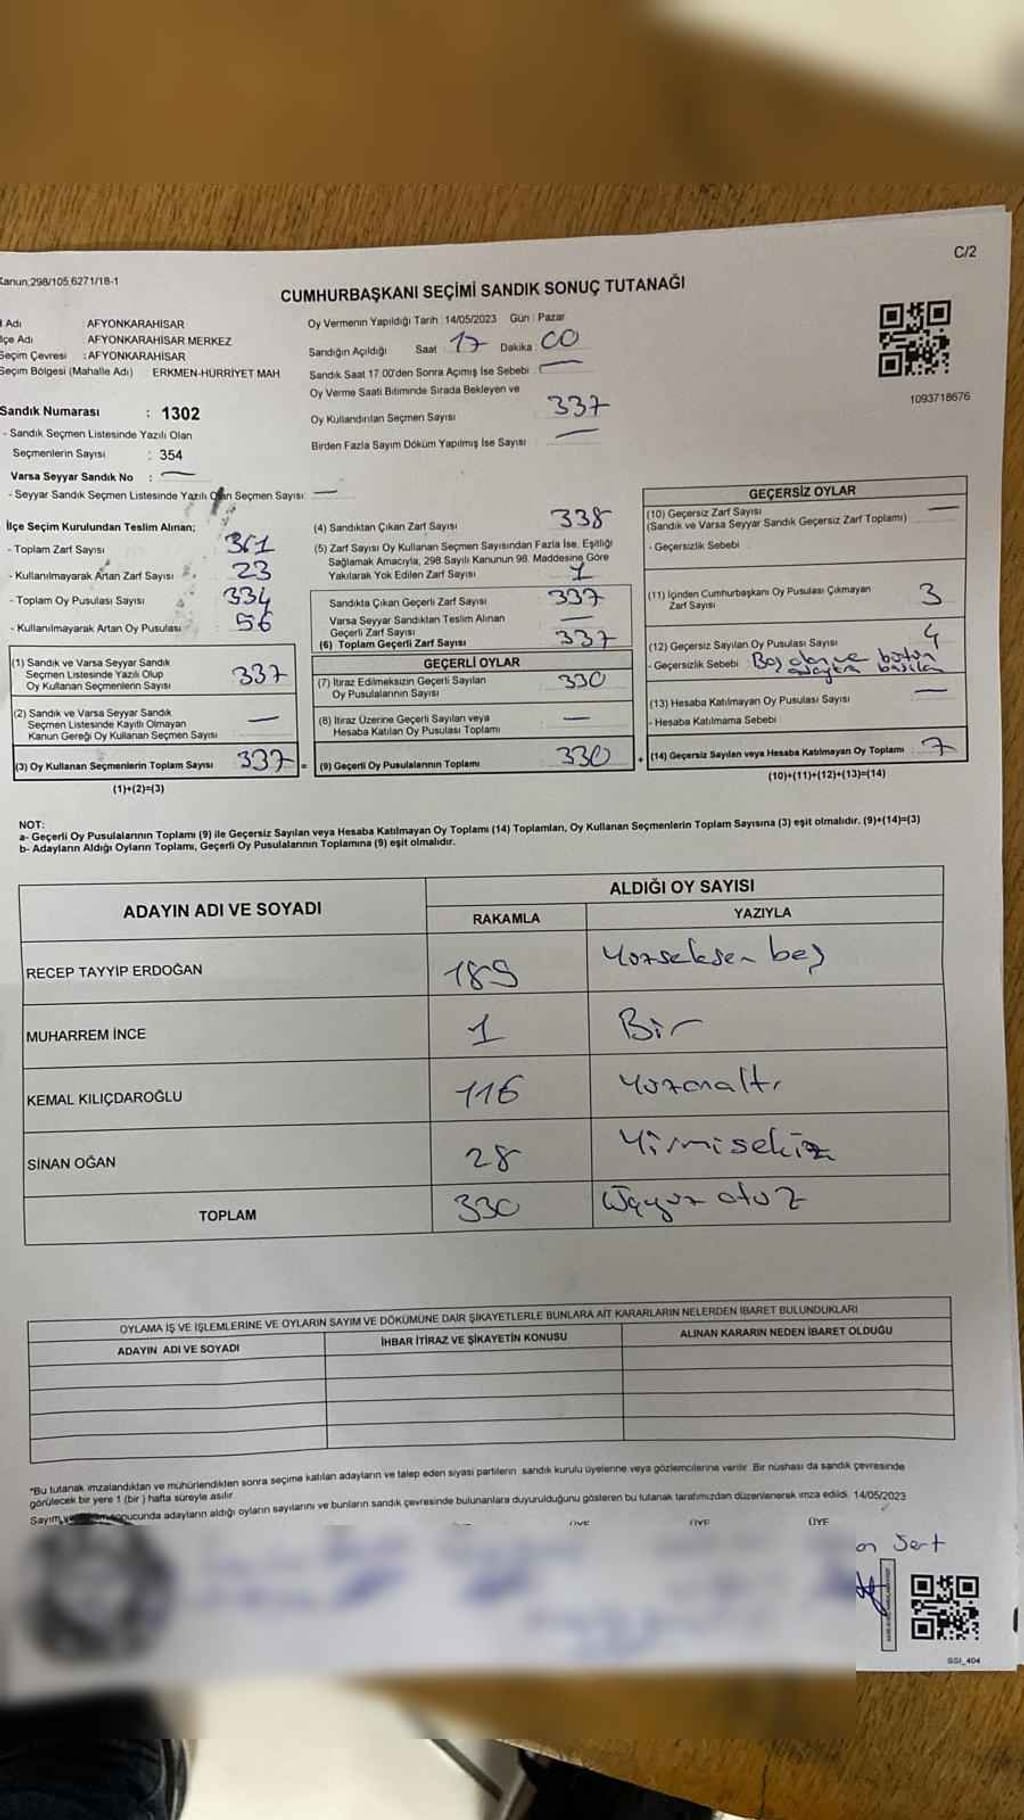 Kanun;298/105,6271/18-1
C/2
CUMHURBAŞKANI SEÇİMİ SANDIK SONUÇ TUTANAĞI
l Adı : AFYONKARAHİSAR
lçe Adı : AFYONKARAHİSAR MERKEZ
Seçim Çevresi : AFYONKARAHİSAR
Seçim Bölgesi (Mahalle Adı) ERKMEN-HÜRRİYET MAH
Sandık Numarası : 1302
- Sandık Seçmen Listesinde Yazılı Olan
Seçmenlerin Sayısı : 354
Varsa Seyyar Sandık No : —
- Seyyar Sandık Seçmen Listesinde Yazılı Olan Seçmen Sayısı: —
Oy Vermenin Yapıldığı Tarih : 14/05/2023 Gün : Pazar
Sandığın Açıldığı Saat : 17 Dakika : 00
Sandık Saat 17.00'den Sonra Açımış İse Sebebi : —
Oy Verme Saati Bitiminde Sırada Bekleyen ve
Oy Kullandırılan Seçmen Sayısı 337
Birden Fazla Sayım Döküm Yapılmış İse Sayısı —
1093718676
İlçe Seçim Kurulundan Teslim Alınan;
- Toplam Zarf Sayısı 361
- Kullanılmayarak Artan Zarf Sayısı 23
- Toplam Oy Pusulası Sayısı 334
- Kullanılmayarak Artan Oy Pusulası 56
(1) Sandık ve Varsa Seyyar Sandık
Seçmen Listesinde Yazılı Olup
Oy Kullanan Seçmenlerin Sayısı 337
(2) Sandık ve Varsa Seyyar Sandık
Seçmen Listesinde Kayıtlı Olmayan
Kanun Gereği Oy Kullanan Seçmen Sayısı —
(3) Oy Kullanan Seçmenlerin Toplam Sayısı 337 =
(1)+(2)=(3)
(4) Sandıktan Çıkan Zarf Sayısı 338
(5) Zarf Sayısı Oy Kullanan Seçmen Sayısından Fazla İse, Eşitliği
Sağlamak Amacıyla, 298 Sayılı Kanunun 98. Maddesine Göre
Yakılarak Yok Edilen Zarf Sayısı 1
Sandıkta Çıkan Geçerli Zarf Sayısı 337
Varsa Seyyar Sandıktan Teslim Alınan
Geçerli Zarf Sayısı —
(6) Toplam Geçerli Zarf Sayısı 337
GEÇERLİ OYLAR
(7) İtiraz Edilmeksizin Geçerli Sayılan
Oy Pusulalarının Sayısı 330
(8) İtiraz Üzerine Geçerli Sayılan veya
Hesaba Katılan Oy Pusulası Toplamı —
(9) Geçerli Oy Pusulalarının Toplamı 330 +
GEÇERSİZ OYLAR
(10) Geçersiz Zarf Sayısı —
(Sandık ve Varsa Seyyar Sandık Geçersiz Zarf Toplamı)
- Geçersizlik Sebebi
(11) İçinden Cumhurbaşkanı Oy Pusulası Çıkmayan
Zarf Sayısı 3
(12) Geçersiz Sayılan Oy Pusulası Sayısı 4
- Geçersizlik Sebebi Boş olan ve bütün
basılan
(13) Hesaba Katılmayan Oy Pusulası Sayısı —
- Hesaba Katılmama Sebebi
(14) Geçersiz Sayılan veya Hesaba Katılmayan Oy Toplamı : 7
(10)+(11)+(12)+(13)=(14)
NOT:
a- Geçerli Oy Pusulalarının Toplamı (9) ile Geçersiz Sayılan veya Hesaba Katılmayan Oy Toplamı (14) Toplamları, Oy Kullanan Seçmenlerin Toplam Sayısına (3) eşit olmalıdır. (9)+(14)=(3)
b- Adayların Aldığı Oyların Toplamı, Geçerli Oy Pusulalarının Toplamına (9) eşit olmalıdır.
ADAYIN ADI VE SOYADI ALDIĞI OY SAYISI
RAKAMLA YAZIYLA
RECEP TAYYİP ERDOĞAN 185 Yüzseksen beş
MUHARREM İNCE 1 Bir
KEMAL KILIÇDAROĞLU 116 Yüzonaltı
SİNAN OĞAN 28 Yirmisekiz
TOPLAM 330 Üçyüz otuz
OYLAMA İŞ VE İŞLEMLERİNE VE OYLARIN SAYIM VE DÖKÜMÜNE DAİR ŞİKAYETLERLE BUNLARA AİT KARARLARIN NELERDEN İBARET BULUNDUKLARI
ADAYIN ADI VE SOYADI İHBAR İTİRAZ VE ŞİKAYETİN KONUSU ALINAN KARARIN NEDEN İBARET OLDUĞU
*Bu tutanak imzalandıktan ve mühürlendikten sonra seçime katılan adayların ve talep eden siyasi partilerin sandık kurulu üyelerine veya gözlemcilerine verilir. Bir nüshası da sandık çevresinde
görülecek bir yere 1 (bir ) hafta süreyle asılır.
Sayım ve sonucunda adayların aldığı oyların sayılarını ve bunların sandık çevresinde bulunanlara duyurulduğunu gösteren bu tutanak tarafımızdan düzenlenerek imza edildi. 14/05/2023
ÜYE ÜYE ÜYE
on Sert
SSI_404